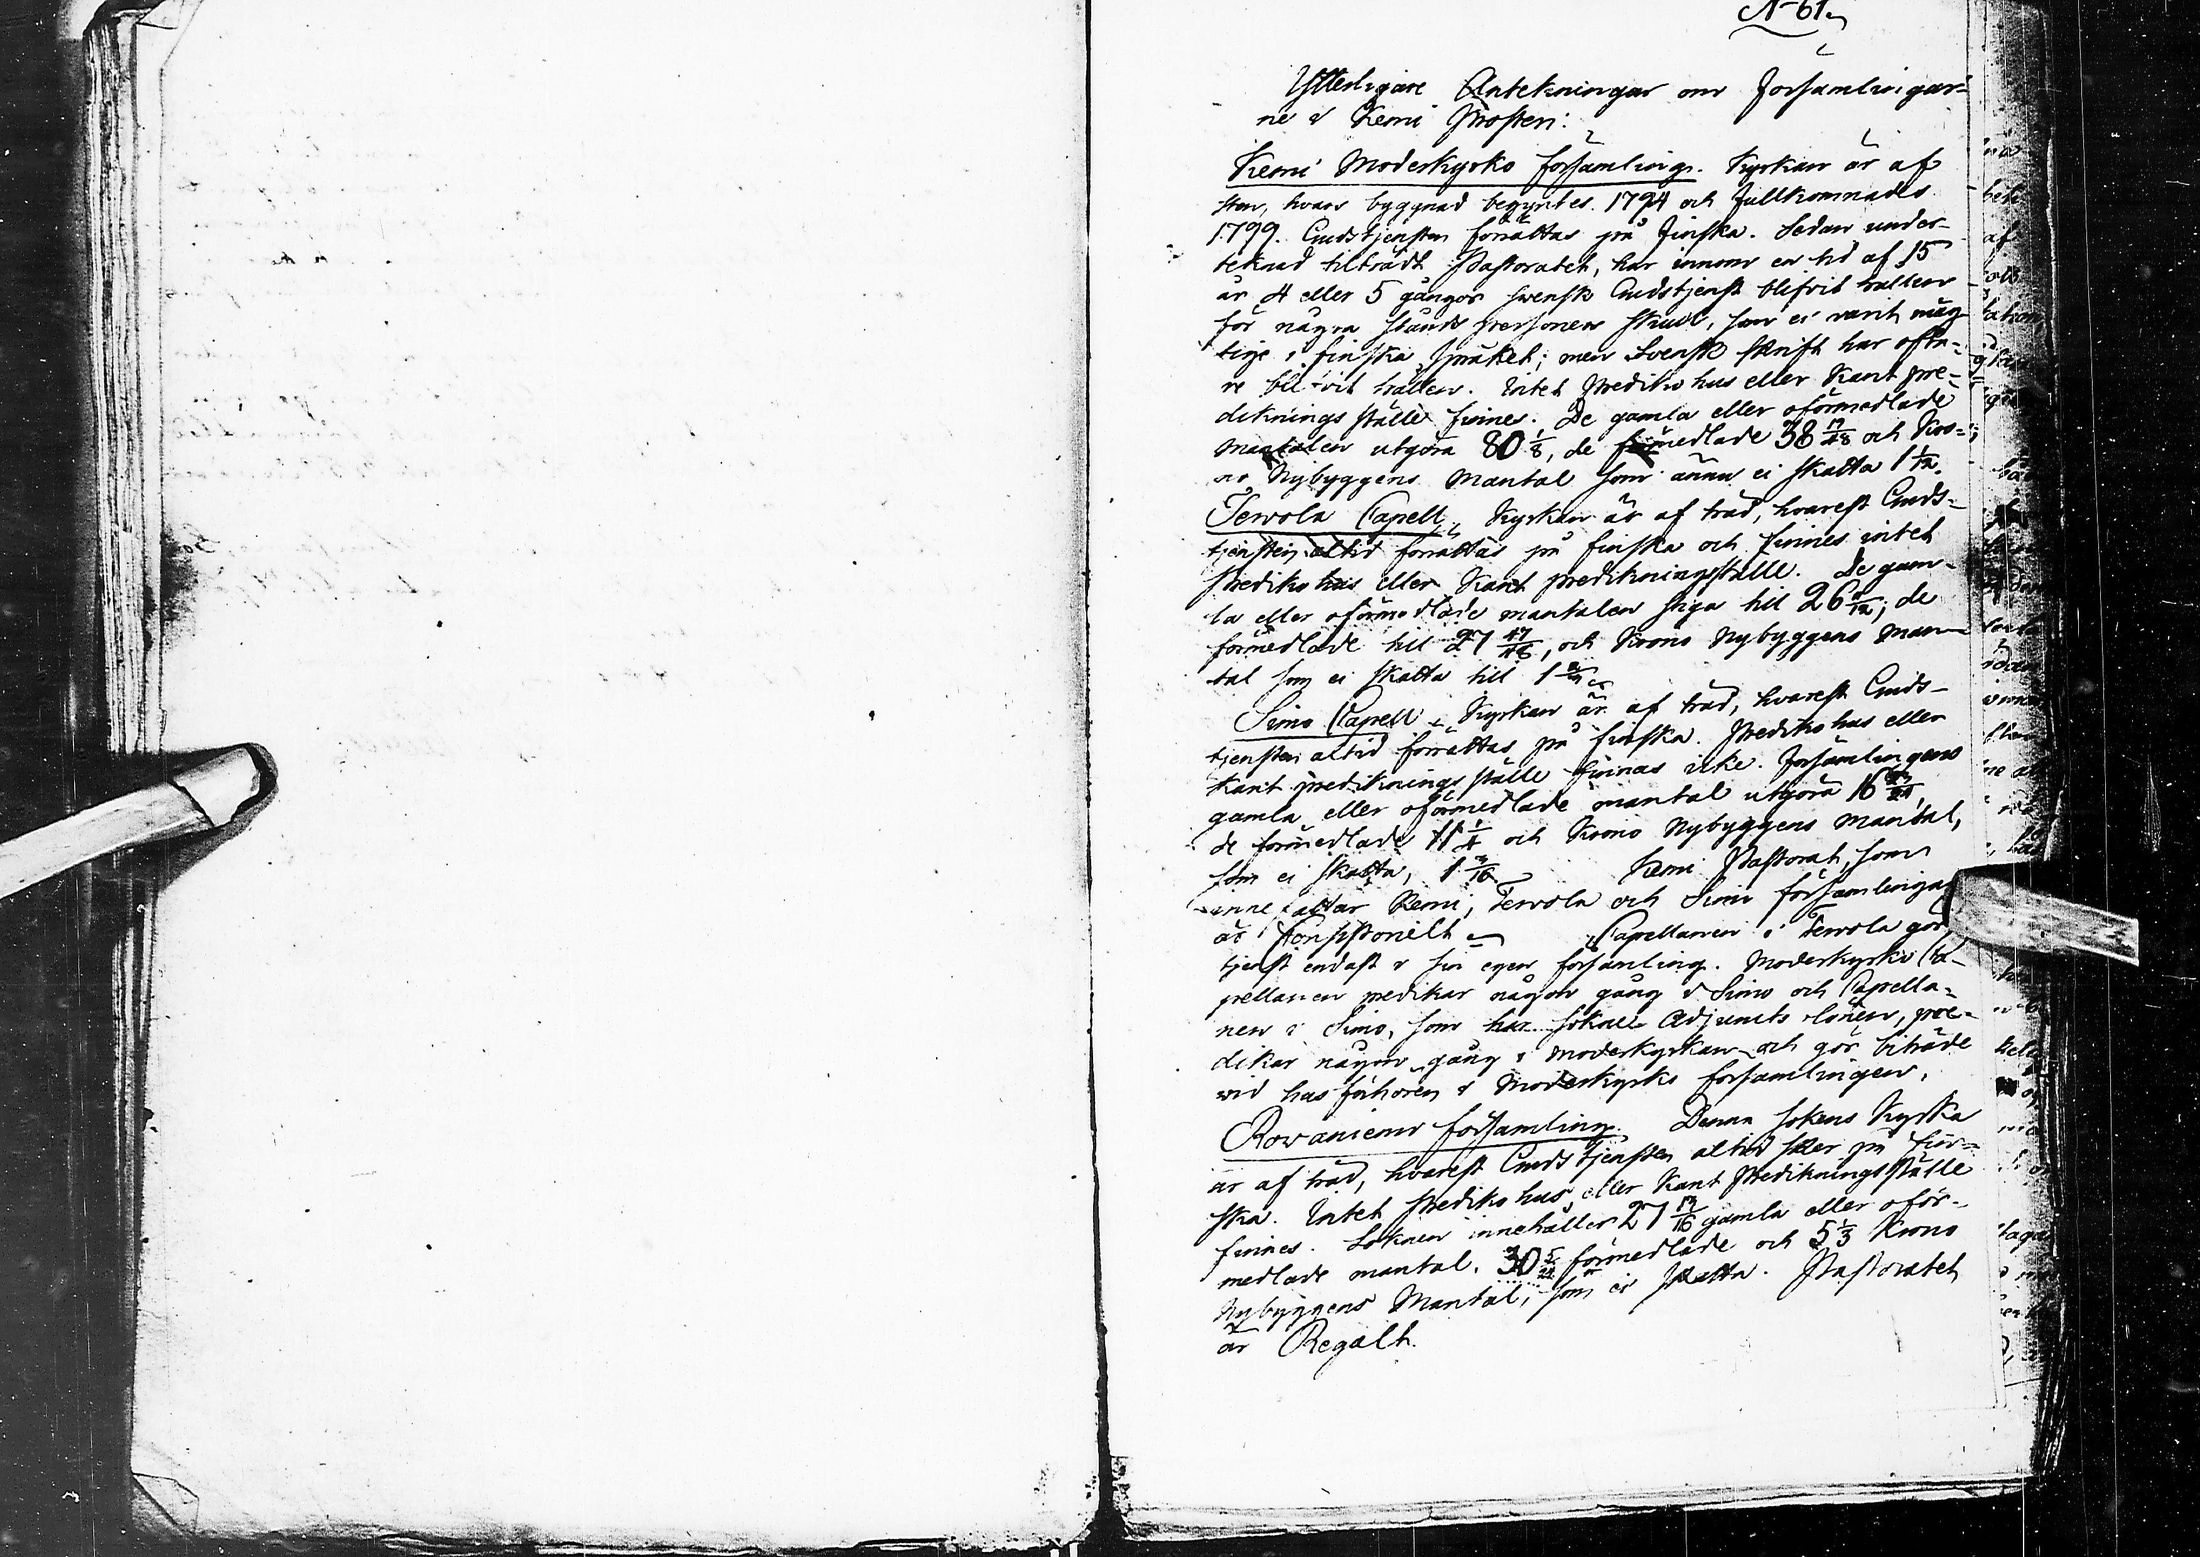 N 61.
Ytterligare Antekningar om Församlingar-
ne i Kemi Prosteri:
Kemi Moderkyrko församling. Kyrkan är af
sten, hvars byggnad begyntes 1794 och fullkomnades
1799. Gudstjensten förrättas på finska. Sedan under-
teknad tilträdt Pastoratet, har innom en tid af 15
år 4 eller 5 gångor svensk Gudstjenst blifvit hallen
för några stånds personers skull, som ei varit mäg-
tige i finska språket; men Svensk skrift har ofta-
re blifvit hallen. Intet Prediko hus eller Kant pre-
diknings ställe finnes. De gamla eller oförmedlade
mantalen utgöra 80 1/8, de förmedlade 38 17/48 och Kro-
no Nybyggens Mantal som ännu ei skatta 1 1/12.
Tervola Capell, Kyrkan är af träd, hvarest Guds-
tjensten altid förrättas på finska och finnes intet
Prediko hus eller Kant predikningsställe. De gam-
la eller oförmedlade mantalen stiga till 26 /12; de
förmedlade till 27 47/48, och Krono Nybyggens Man-
tal som ei skatta till 1
Simo Capell. Kyrkan är af träd, hvarest Guds-
tjensten altid förrättas på finska. Prediko hus eller
Kant predikningsställe finnas icke. Församlingens
gamla eller oförmedlade mantal utgöra 16 /24,
de förmedlade 11 1/4 och Krono Nybyggens mantal,
som ei skatta, 1 3/16. Kemi Pastorat, som
innefattar Kemi, Tervola och Simo församlingar
är Konsistorielt. Capellanen i Tervola gör
tjenst endast i sin egen församling. Moderkyrko Ca-
pellanen predikar någon gång i Simo och Capella-
nen i Simo, som har sokne Adjuncts lönen, pre-
dikar någon gång i moderkyrkan och gör biträde
vid husförhören i Moderkyrko församlingen.
Rovaniemi församling. Denna sokens Kyrka
är af träd, hvarest Gudstjensten altid sker på fin-
ska. Intet Prediko hus eller Kant Predikningsställe
finnes. Soknen innehåller 27 13/16 gamla eller oför-
medlade mantal, 30 5/24 förmedlade och 5 1/3 Krono
Nybyggens Mantal, som ei skatta. Pastoratet
är Regalt.